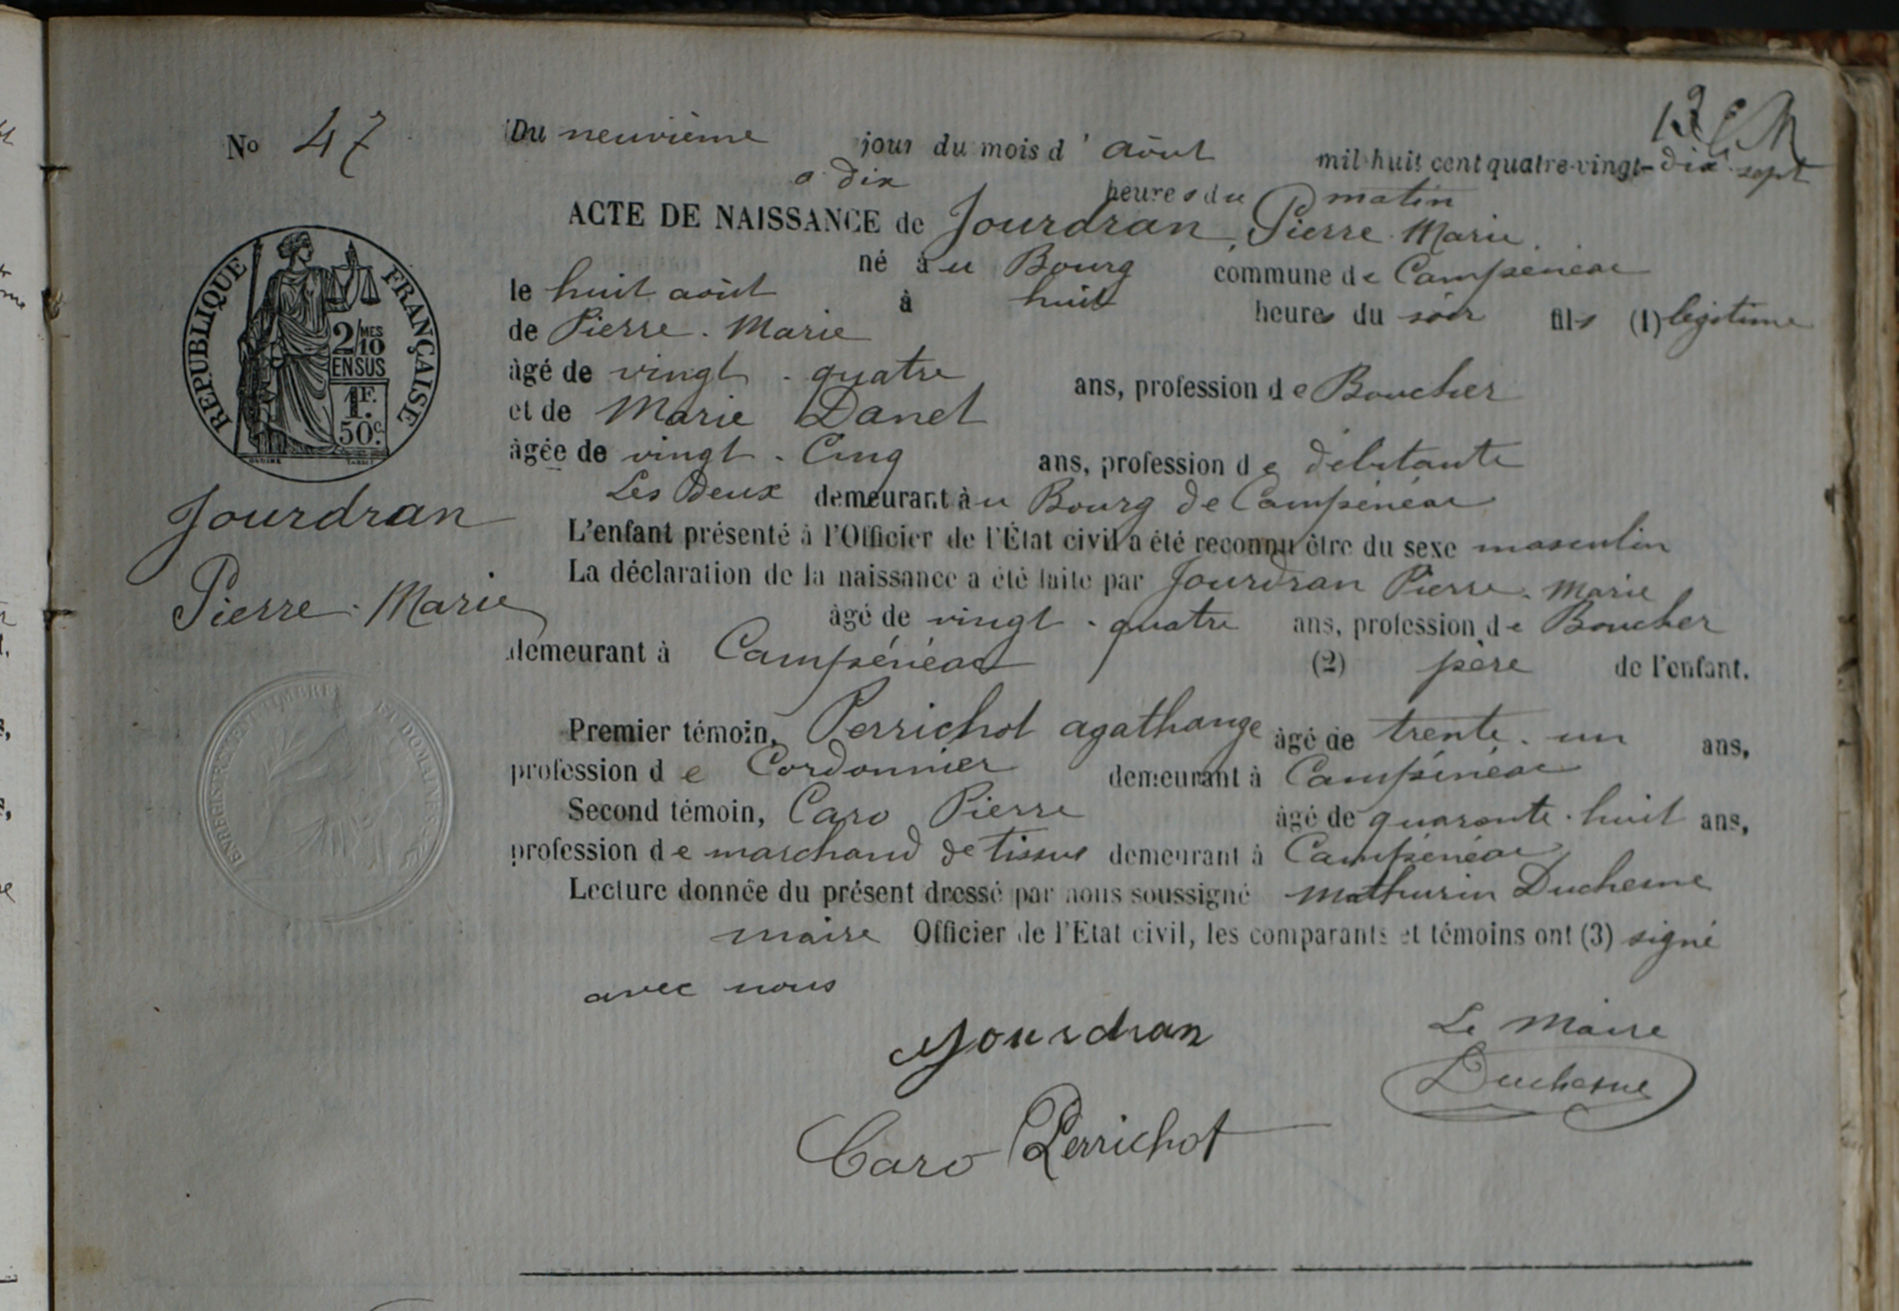 No 47
Du neuvième jour du mois d'août mil huit cent quatre-vingt-dix-sept
à dix heures du matin
ACTE DE NAISSANCE de Jourdran, Pierre Marie
né au Bourg commune de Campénéac
le huit août à huit heures du soir fils (1) légitime
de Pierre-Marie
âgé de vingt-quatre ans, profession de Boucher
et de Marie Danet
âgée de vingt-Cinq ans, profession de débitante
Les Deux demeurant au Bourg de Campénéac
L'enfant présenté à l'Officier de l'État civil a été reconnu être du sexe masculin
La déclaration de la naissance a été faite par Jourdran Pierre-Marie
âgé de vingt-quatre ans, profession de Boucher
demeurant à Campénéac (2) père de l'enfant.
Premier témoin, Perrichot agathange âgé de trente-un ans,
profession de Cordonnier demeurant à Campénéac
Second témoin, Caro Pierre âgé de quarante-huit ans,
profession de marchand de tissus demeurant à Campénéac
Lecture donnée du présent dressé par nous soussigné Mathurin Duchesne
maire Officier de l'Etat civil, les comparants et témoins ont (3) signé
avec nous
Jourdran
Le Maire
Duchesne
Caro Perrichot
Jourdran
Pierre-Marie
REPUBLIQUE FRANÇAISE
2/MES
10
EN SUS
1F.
50c.